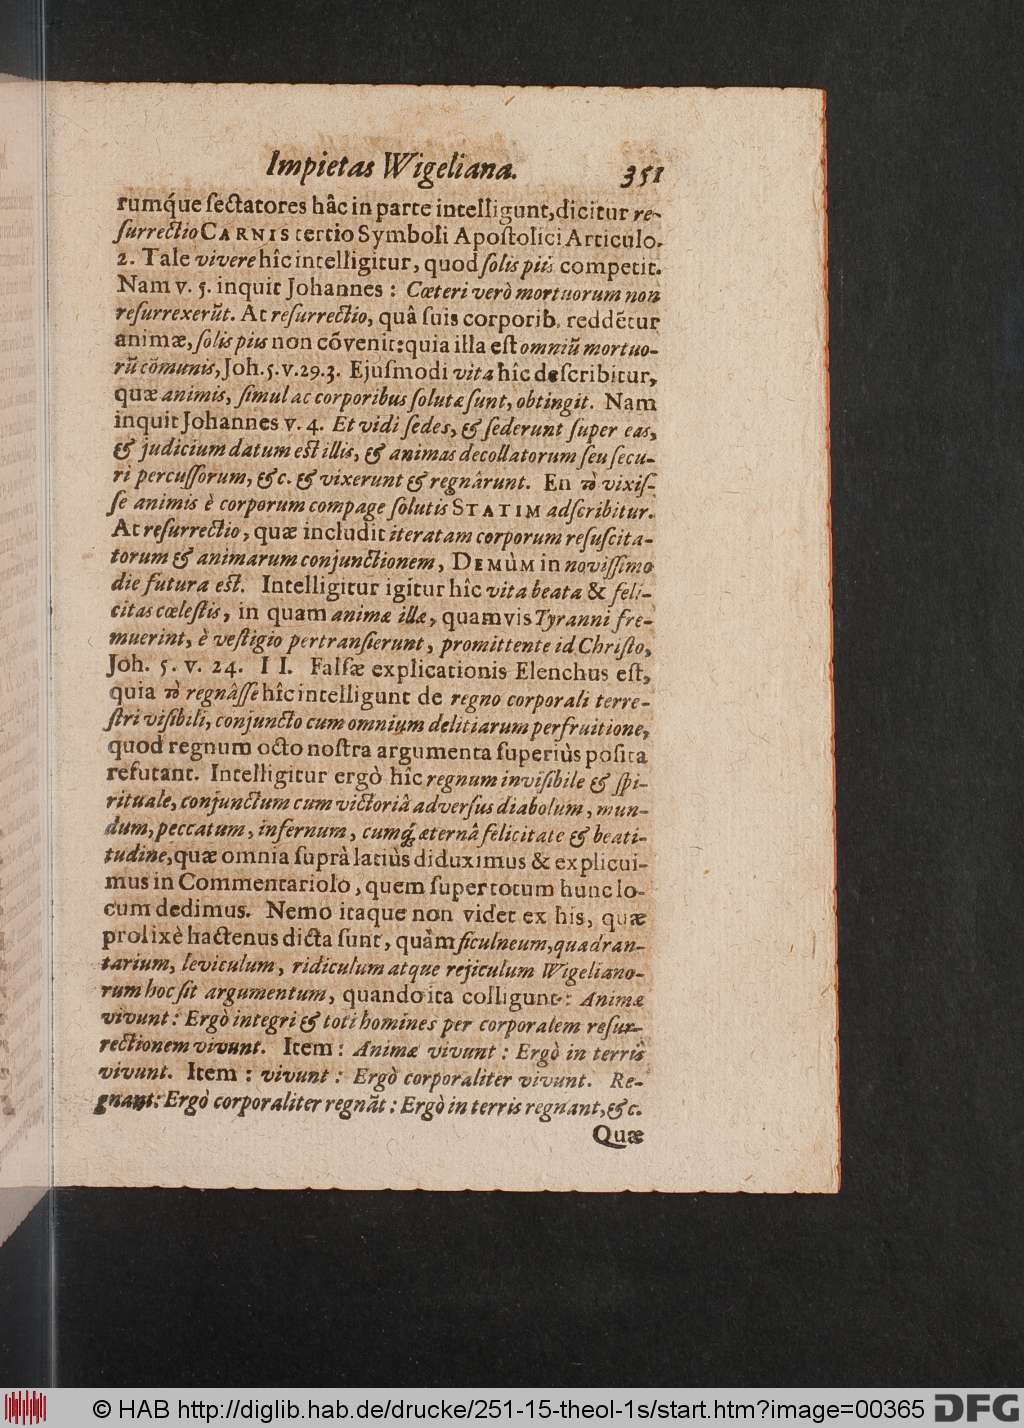 Impietas Wigeliana. 351
rumq́ue ſectatores hâc in parte intelligunt, dicitur re-
ſurrectio CARNIS tertio Symboli Apoſtolici Articulo.
2. Tale vivere hîc intelligitur, quod ſolis piis competit.
Nam v. 5. inquit Johannes: Cœteri verò mortuorum non
reſurrexerũt. At reſurrectio, quâ ſuis corporib. reddẽtur
animæ, ſolis pius non cõvenit: quia illa eſt omniũ mortuo-
rũ cõmunis, Joh. 5. v. 29. 3. Ejuſmodi vita hîc deſcribitur,
quæ animis, ſimul ac corporibus ſolutæ ſunt, obtingit. Nam
inquit Johannes v. 4. Et vidi ſedes, & ſederunt ſuper eas,
& judicium datum eſt illis, & animas decollatorum ſeu ſecu-
ri percuſſorum, &c. & vixerunt & regnârunt. En τὸ vixiſ-
ſe animis è corporum compage ſolutis STATIM adſcribitur.
At reſurrectio, quæ includit iteratam corporum reſuſcita-
torum & animarum conjunctionem, DEMÙM in noviſſimo
die futura eſt. Intelligitur igitur hîc vita beata & feli-
citas cœleſtis, in quam animæ illæ, quamvis Tyranni fre-
muerint, è veſtigio pertranſierunt, promittente id Chriſto,
Joh. 5. v. 24. II. Falſæ explicationis Elenchus eſt,
quia τὸ regnâſſe hîc intelligunt de regno corporali terre-
ſtri viſibili, conjuncto cum omnium delitiarum perfruitione,
quod regnum octo noſtra argumenta ſuperiùs poſita
refutant. Intelligitur ergò hîc regnum inviſibile & ſpi-
rituale, conjunctum cum victoriâ adverſus diabolum, mun-
dum, peccatum, infernum, cumq́; æternâ felicitate & beati-
tudine, quæ omnia ſuprà latiùs diduximus & explicui-
mus in Commentariolo, quem ſuper totum hunc lo-
cum dedimus. Nemo itaque non videt ex his, quæ
prolixè hactenus dicta ſunt, quàm ficulneum, quadran-
tarium, leviculum, ridiculum atque rejiculum Wigeliano-
rum hoc ſit argumentum, quando ita colligunt: Animæ
vivunt: Ergò integri & toti homines per corporalem reſur-
rectionem vivunt. Item: Animæ vivunt: Ergò in terris
vivunt. Item: vivunt: Ergò corporaliter vivunt. Re-
gnant: Ergò corporaliter regnãt: Ergò in terris regnant, &c.
Quæ
© HAB http://diglib.hab.de/drucke/251-15-theol-1s/start.htm?image=00365 DFG